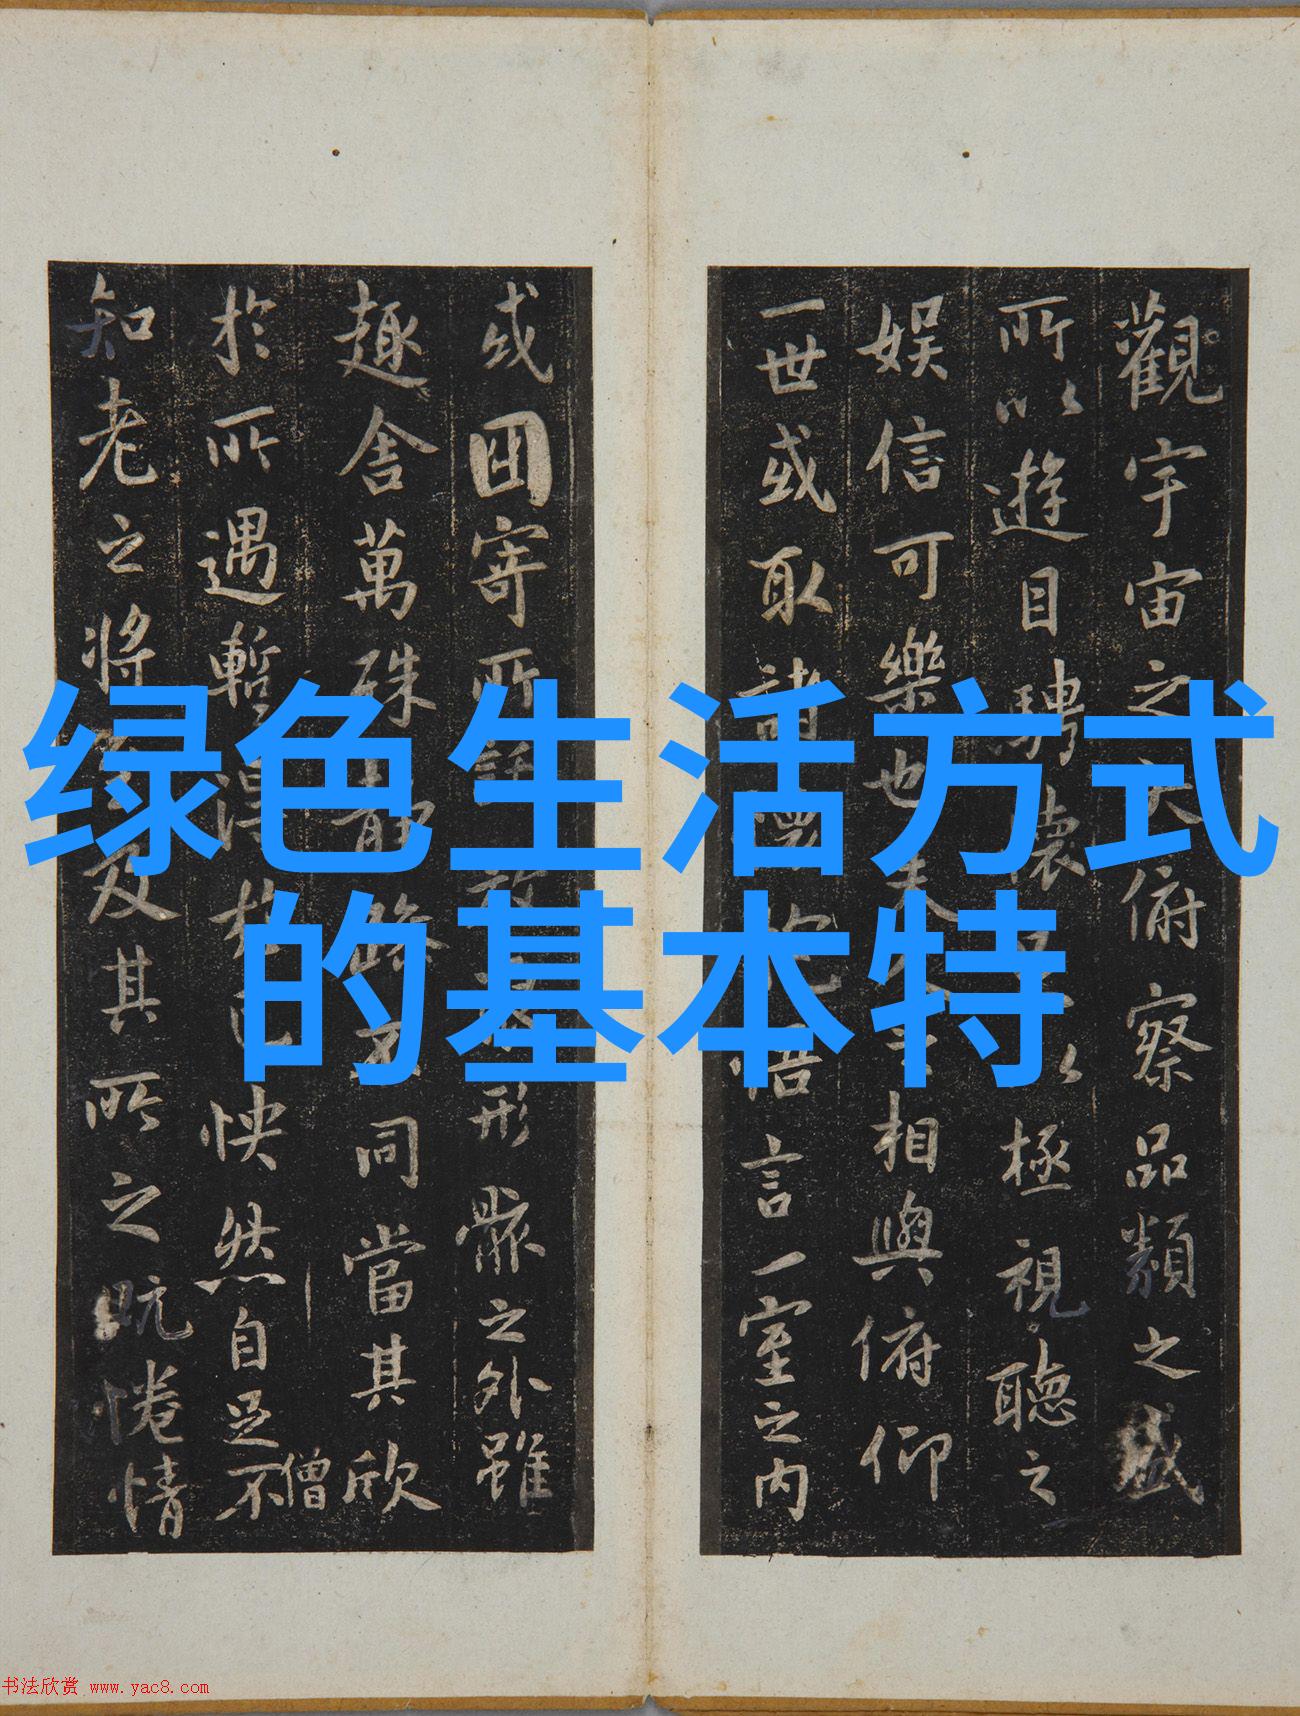 绿色生活方式
的基本特
觀宇宙之大俯察品類之盛
所以遊目騁懷以極視聽之
娛信可樂也夫相與俯仰
一世或取諸懷抱悟言一室之内
或因寄所託放形骸之外雖
趣舍萬殊静躁不同當其欣
於所遇暫得於己怏然自足不
僧
知老之將及其所之既惓情
书法欣赏 www.yac8.com